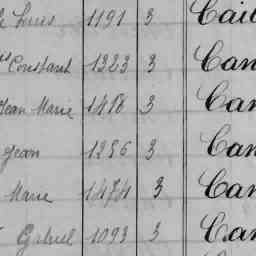 Louis 1191 3 Cail
Constant 1323 3 Can
Jean Marie 1458 3 Can
Jean 1256 3 Can
Marie 1474 3 Can
Gabriel 1093 3 Can